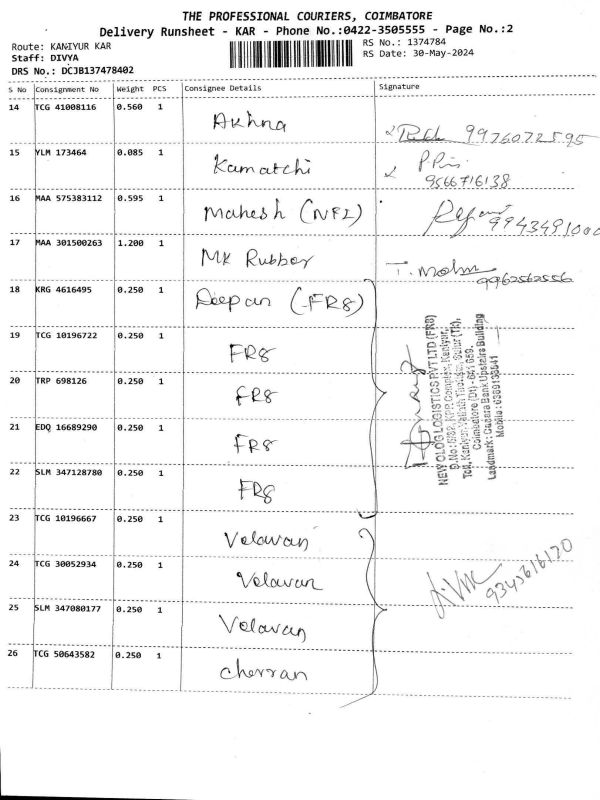 THE PROFESSIONAL COURIERS, COIMBATORE
Delivery Runsheet - KAR - Phone No.:0422-3505555 - Page No.:2
Route: KANIYUR KAR
RS No.: 1374784
Staff: DIVYA
RS Date: 30-May-2024
DRS No.: DCJB137478402
S No Consignment No Weight PCS Consignee Details Signature
14 TCG 41008116 0.560 1 Akhna 9976072595
15 YLM 173464 0.085 1 Kamatchi 9566716138
16 MAA 575383112 0.595 1 Mahesh (NFI) 9943491000
17 MAA 301500263 1.200 1 MK Rubber T. Mohan 9962562556
18 KRG 4616495 0.250 1 Deepan (FR8)
19 TCG 10196722 0.250 1 FR8
20 TRP 698126 0.250 1 FR8
21 EDQ 16689290 0.250 1 FR8
22 SLM 347128780 0.250 1 FR8
NEW OLOG LOGISTICS PVT LTD (FR8)
D.No: KPP Complex, Kaniyur,
Tcll, Kaniyur Sulur (Tk),
Coimbatore (Dt) - 641 659.
Landmark: Canara Bank Upstairs Building
Mobile:
23 TCG 10196667 0.250 1 Velavan
24 TCG 30052934 0.250 1 Velavan 9345616120
25 SLM 347080177 0.250 1 Velavan
26 TCG 50643582 0.250 1 Cherran